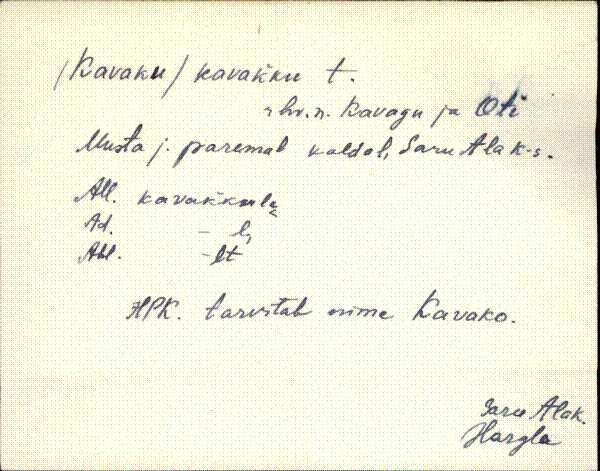 (Kavaku) kavakku t.
rhv.n. Kavagu ja Oti
Musta j. paremal kaldal, Saru Alak-s.
All. kavakkulę
Ad. – l,
Abl. – lt
HPK. tarvitab nime Kavako.
Saru Alak.
Hargla